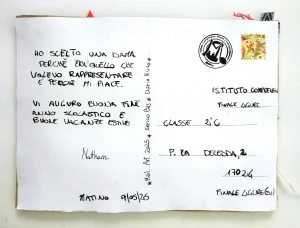 HO SCELTO UNA DAMA
PERCHÉ ERA QUELLO CHE
VOLEVO RAPPRESENTARE
E PERCHÉ MI PIACE.
VI AUGURO BUONA FINE
ANNO SCOLASTICO E
BUONE VACANZE ESTIVE
Nathan
MATINO 9/05/26
ISTITUTO
FINALE LIGURE
CLASSE 2ªC
P.ZA DELEDDA, 2
17024
FINALE LIGURE (SV)